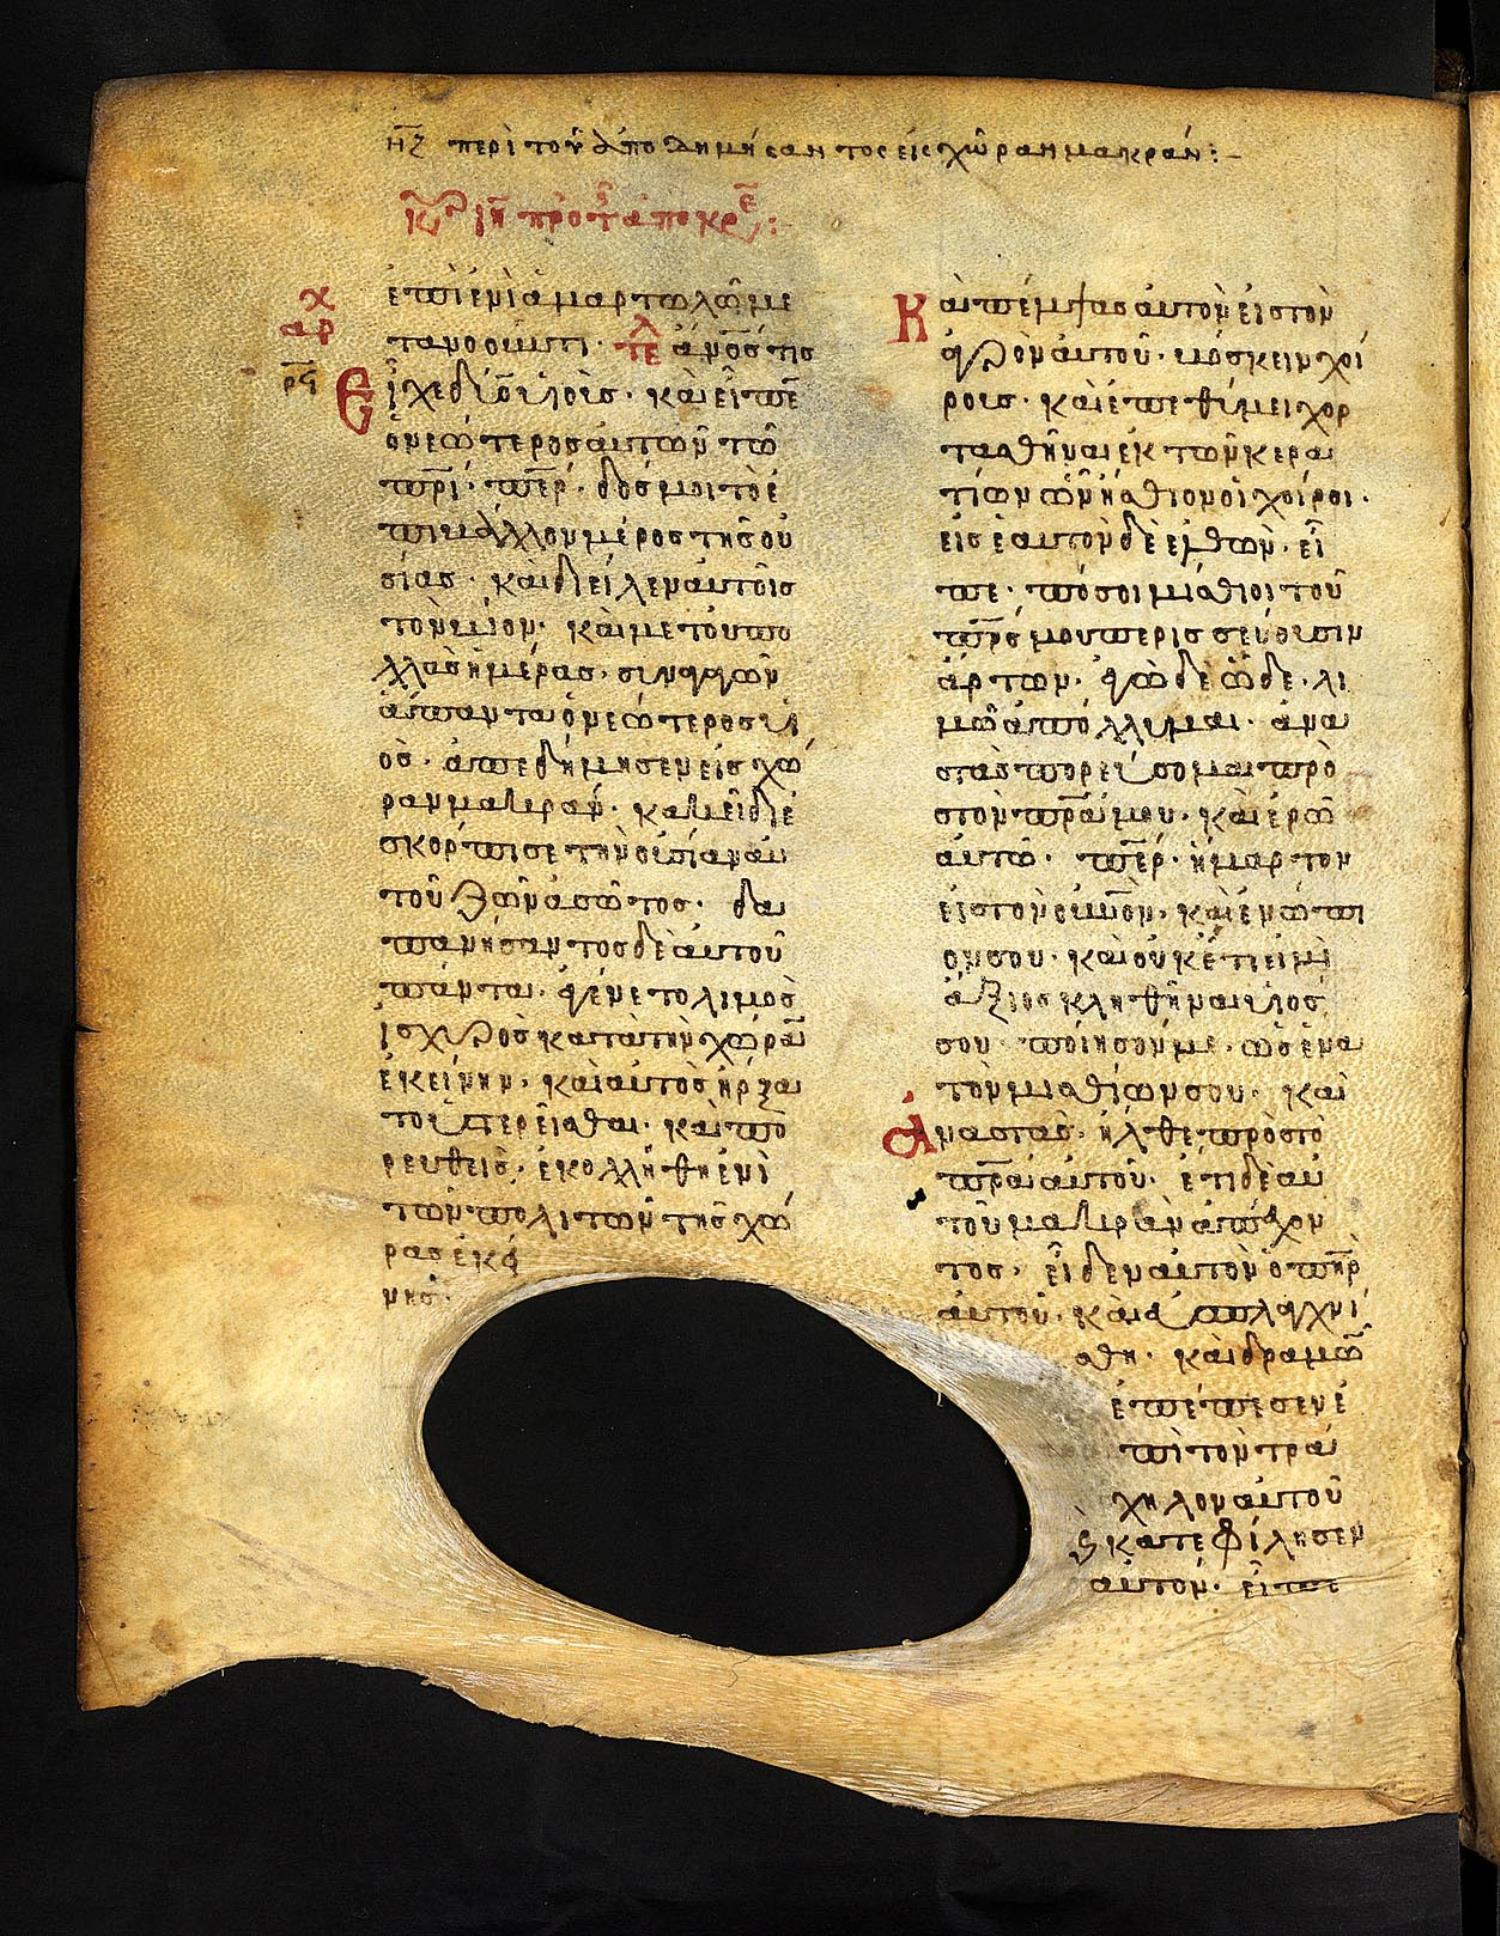 ΝΖ περὶ τοῦ ἀποδημήσαντος εἰς χώραν μακράν :-
ἐπὶ ἑνὶ ἁμαρτωλῶ με
τανοοῦντι · τελ ἄνος τις
Εἶχε δύο υἱοὺς · καὶ εἶπεν
ὁ νεώτερος αὐτῶν τῶ
πρι · περ · δός μοι τὸ ἐ
πιβάλλον μέρος τῆς οὐ
σίας · καὶ διεῖλεν αὐτοῖς
τὸν βίον · καὶ μετ οὐ πο
λλὰς ἡμέρας · συναγαγὼν
ἅπαντα ὁ νεώτερος υἱ
ὸς · ἀπεδήμησεν εἰς χώ
ραν μακράν · κακεῖ διε
σκόρπισε τὴν οὐσίαν αὐ
τοῦ ζῶν ἀσώτος · δα
πανήσαντος δὲ αὐτοῦ
πάντα · ἐγένετο λιμὸς
ἰσχυρὸς κατὰ τὴν χώραν
ἐκείνην · καὶ αὐτὸς ἤρξα
το ὑστερεῖσθαι · καὶ πο
ρευθεὶς · ἐκολλήθη ἑνὶ
τῶν πολιτῶν τῆς χώ
ρας ἐκεί
νης ·
Καὶ ἔπεμψας αὐτὸν εἰς τὸν
ἀγρὸν αὐτοῦ · βόσκειν χοί
ρους · καὶ ἐπεθύμει χορ
τασθῆναι ἐκ τῶν κερα
τίων ὧν ἤσθιον οἱ χοῖροι ·
εἰς ἑαυτὸν δὲ ἐλθὼν · εἶ
πε · πόσοι μίσθιοι τοῦ
πρς μου περισσεύουσιν
ἄρτων · ἐγὼ δὲ ὧδε · λι
μῶ ἀπόλλυμαι · ἀνα
στὰς πορεύσομαι πρὸ
ς τὸν πρα μου · καὶ ἐρῶ
αὐτῶ · περ · ἥμαρτον
εἰς τὸν οὐνον · καὶ ἐνώπι
ον σου · καὶ οὐκέτι εἰμὶ
ἄξιος κληθῆναι υἱός
σου ποίησόν με · ὡς ἕνα
τῶν μισθίων σου · καὶ
Ἀναστὰς · ἦλθε πρὸς τὸ
πρα αὐτοῦ · ἔτι δὲ αὐ
τοῦ μακρὰν ἀπέχον
τος · εἶδεν αὐτὸν ὁ πηρ
αὐτοῦ · καὶ ἐσπλαγχνί
σθη · καὶ δραμὼν
ἐπέπεσεν ἐ
πὶ τὸν τρά
χηλον αὐτοῦ
ϗ κατεφίλησεν
αὐτόν · εἶπε